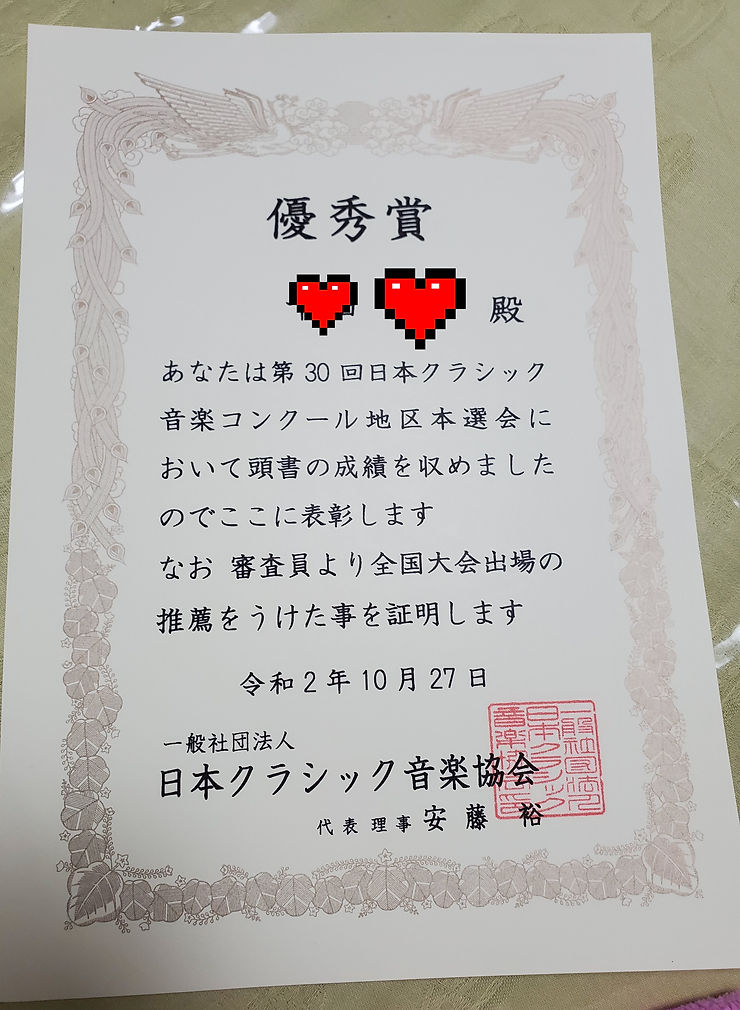 優秀賞
殿
あなたは第30回日本クラシック
音楽コンクール地区本選会に
おいて頭書の成績を収めました
のでここに表彰します
なお 審査員より全国大会出場の
推薦をうけた事を証明します
令和2年10月27日
一般社団法人
日本クラシック音楽協会
代表理事 安藤 裕